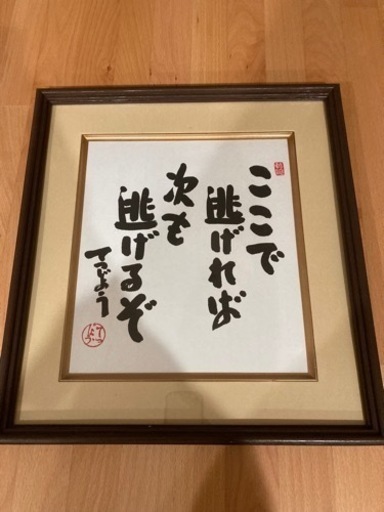 ここで
逃げれば
次も
逃げるぞ
てつどよう